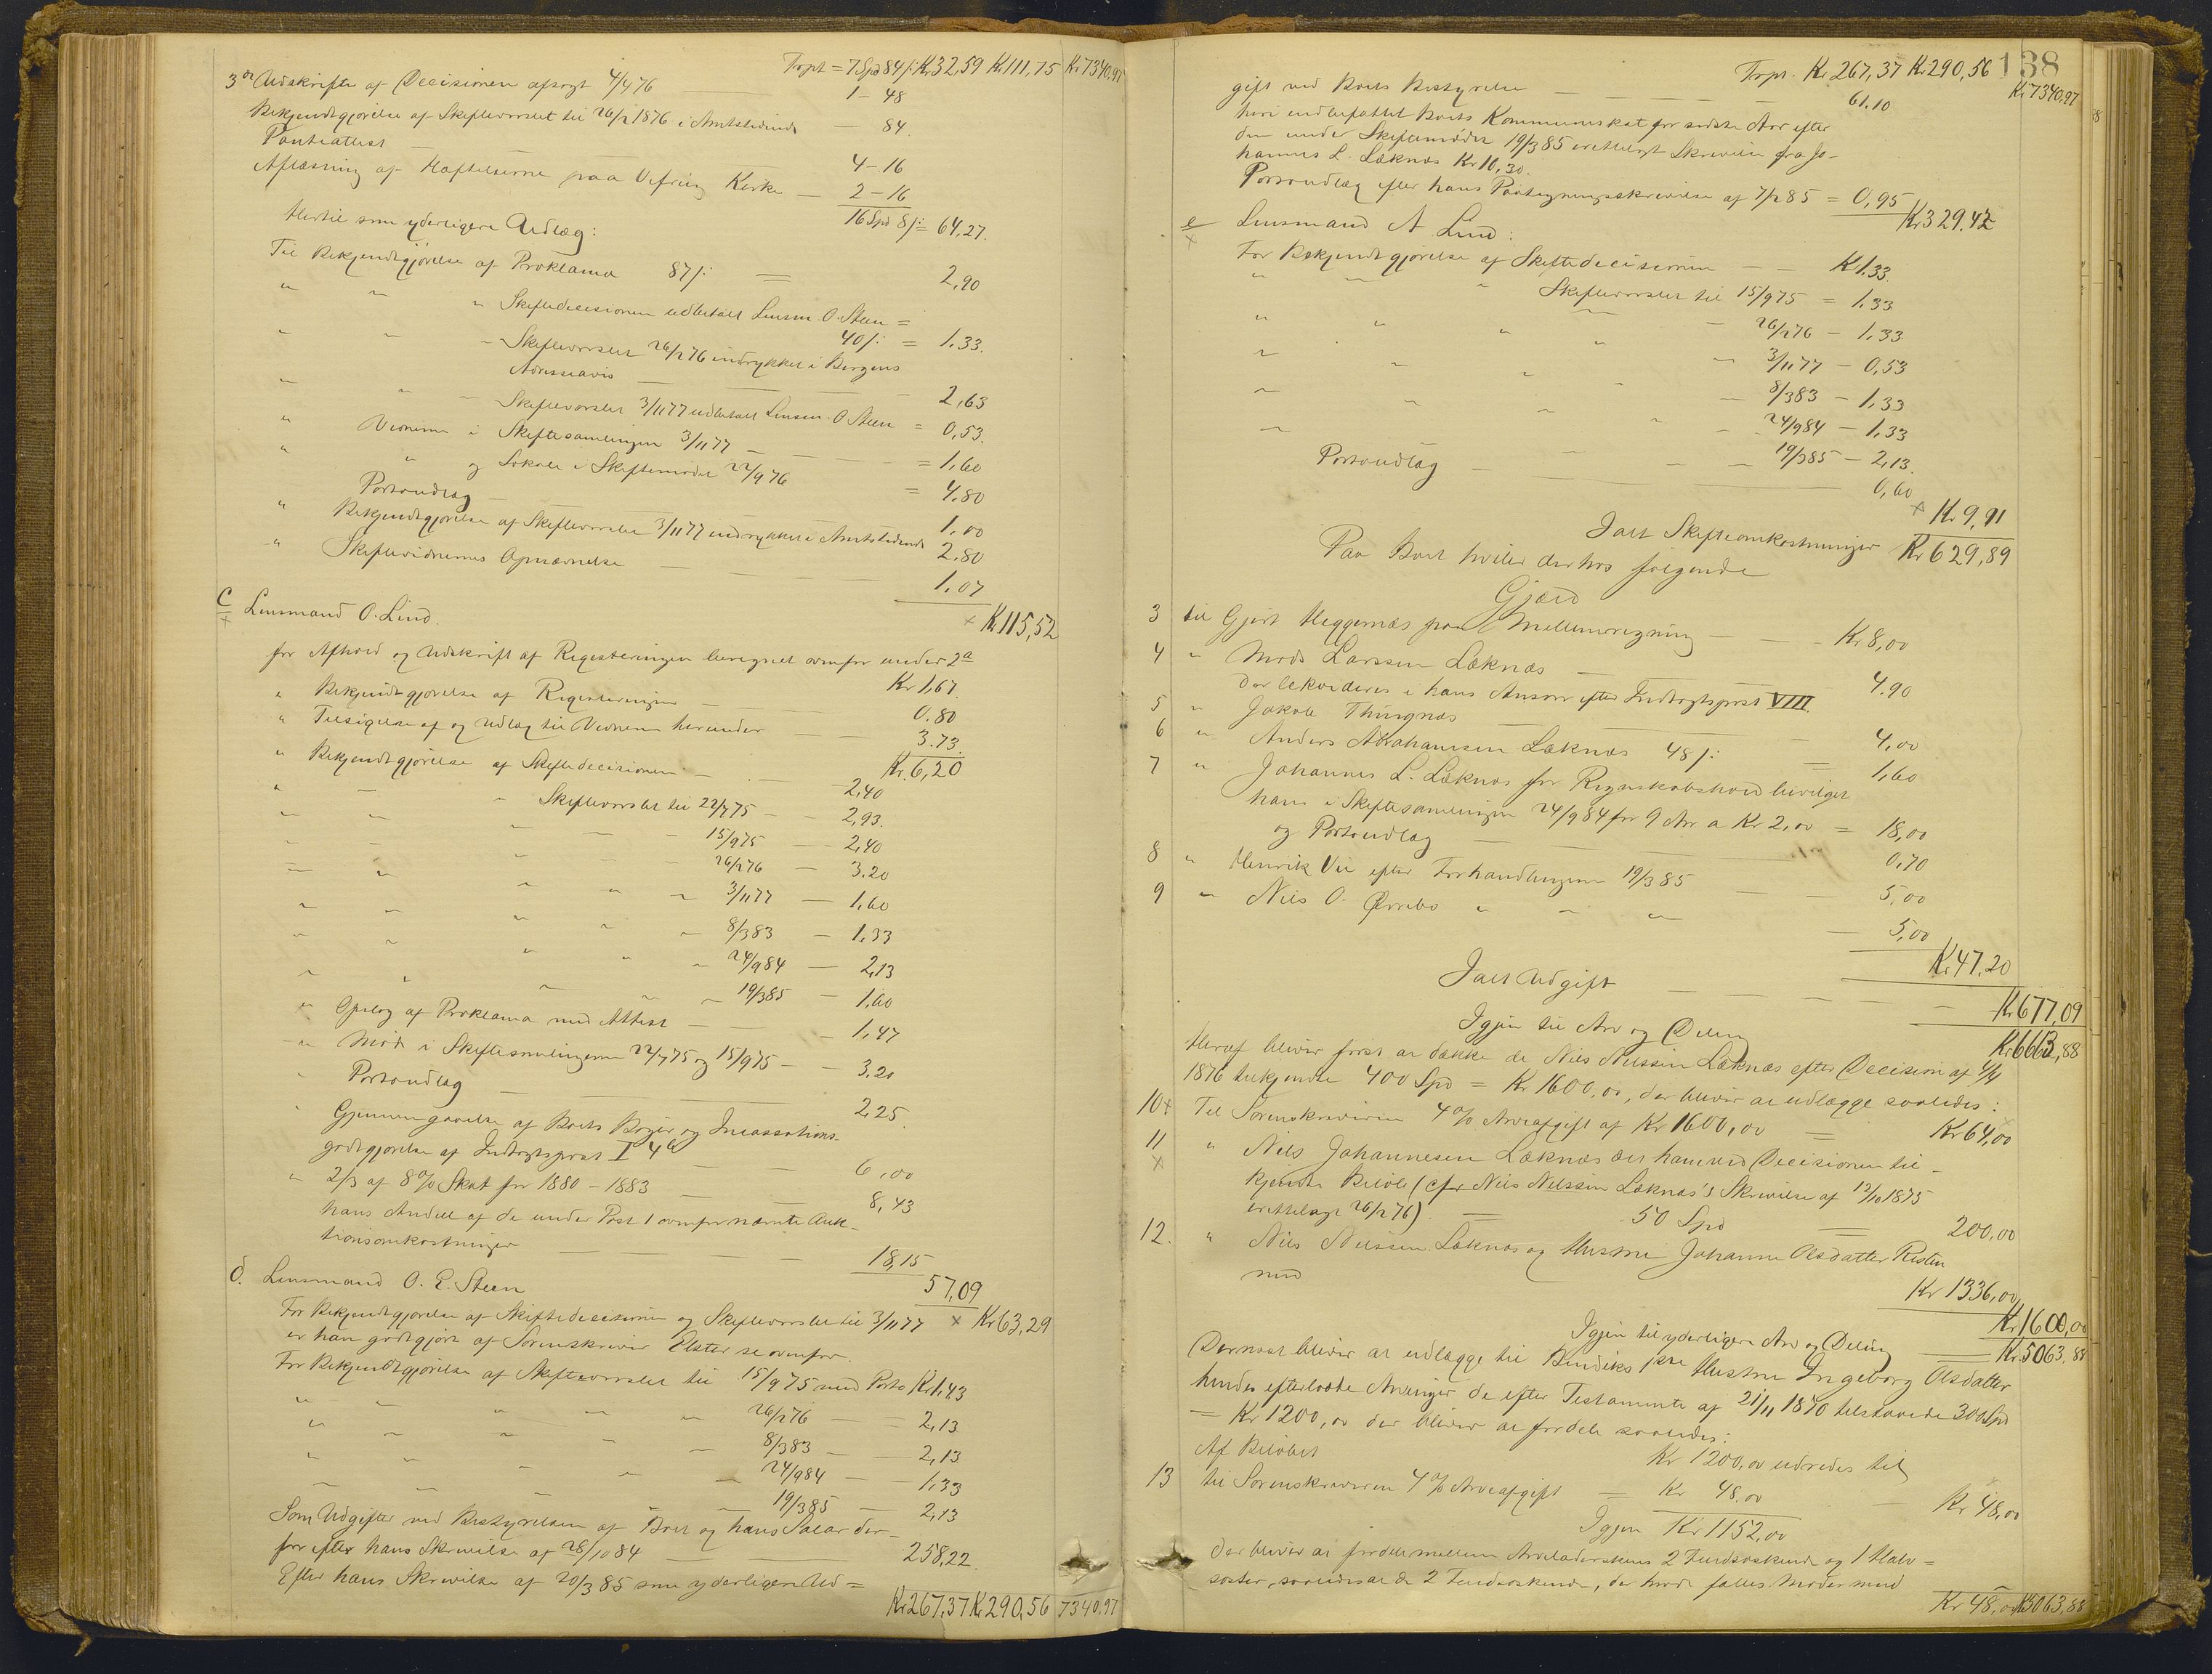 Trpt = 7 Spd 84 /: Kr 32,59 Kr 111,75 Kr 7340,97
3die Udskrifter af Decisionen afsagt 4/4 76 — 1 - 48
Bekjendtgjørelse af Skiftevarslet til 26/2 1876 i Amtstidende — 84
Panteattest — 4 - 16
Aflæsning af Hæftelserne paa Vefring Kirke — 2 - 16
16 Spd 8 /: = 64,27.
Hertil som yderligere Udlæg:
Til Bekjendtgjørelse af Proklama 87 /: = 2,90
" " " Skiftedecisionen udbetalt Lensm. O. Steen =
40 /: = 1,33.
" " " Skiftevarslet 26/2 76 indrykket i Bergens
Adresseavis — 2,63
" " " Skiftevarslet 3/11 77 udbetalt Lensm. O Steen = 0,53.
" Vidnerne i Skiftesamlingen 3/11 77 — = 1,60
" " og Lokale i Skiftemødet 22/9 76 = 4,80
Portoudlæg — 1,00
" Bekjendtgjørelse af Skiftevarslet 3/11 77 indrykket i Amtstidende 2,80
" Skiftevidnernes Opnævnelse — 1,07
× Kr 115,52
C Lensmand O. Lind.
for Afhold og Udskrift af Registreringen beregnet ovenfor under 2a
Kr 1,67.
" Bekjendtgjørelse af Registreringen — 0.80
" Tilsigelse af og Udlæg til Vidnerne herunder — 3.73.
Kr. 6,20
" Bekjendtgjørelse af Skiftedecisionen — 2,40
" — " Skiftevarslet til 22/7 75 — 2,93.
" " " — 15/9 75 — 2,40
" " " " 26/2 76 — 3.20
" " " " 3/11 77 — 1,60
" " " " 8/3 83 — 1,33
" " " " 24/9 84 — 2,13
" " " " 19/3 85 — 1,60
" Opslag af Proklama med Attest — 1,47
" Møde i Skiftesamlingerne 22/7 75 og 15/9 75 — 3,20
" Portoudlæg — 2,25.
" Gjennemgaaelse af Boets Bøger og Incassations-
godtgjørelse af Indtægtspost I 4b — 6,00
" 2/3 af 8% Skat for 1880 - 1883 — 8,43
hans Andel af de under Post 1 ovenfor nævnte Auk-
tionsomkostninger — 18,15
57,09
× Kr 63,29
d. Lensmand O. E. Steen
For Bekjendtgjørelse af Skiftedecisionen og Skiftevarslet til 3/11 77
er han godtgjort af Sorenskriver Elster se ovenfor.
For Bekjendtgjørelse af Skiftevarslet til 15/9 75 med Porto Kr 1,43
" " " " " 26/2 76 — 2,13
" " " " " 8/3 83 — 2,13
" " " " " 24/9 84 — 1,33
" " " " " 19/3 85 — 2,13
Som Udgifter ved Bestyrelsen af Boet og hans Salær der-
for efter hans Skrivelse af 28/10 84 — 258,22.
Efter hans Skrivelse af 20/3 85 som yderligere Ud =
Kr 267,37 Kr 290,56 7340,97
138
Trpt. Kr 267,37 Kr 290,56 Kr 7340,97
gift ved Boets Bestyrelse — 61.10
heri indbefattet Boets Kommuneskat for sidste Aar efter
den under Skiftemødet 19/3 85 irettelagt Skrivelse fra Jo-
hannes L. Løknæs Kr 10,30.
Portoudlæg efter hans Paategningsskrivelse af 7/2 85 = 0,95
Kr 329.42
e Lensmand A Lind:
×
For Bekjendtgjørelse af Skiftedecisionen — K 1.33
" — " Skiftevarslet til 15/9 75 = 1,33
" " " " 26/2 76 — 1,33
" " " " 3/11 77 — 0,53
" " " " 8/3 83 — 1,33
" " " " 24/9 84 — 1,33
19/3 85 — 2,13.
Portoudlæg — 0,60
× Kr 9,91
Ialt Skifteomkostninger Kr 629,89
Paa Boet hviler derhos følgende
Gjæld
3 til Gjert Heggernæs paa Mellemregning — Kr 8,00
4 " Mads Larssen Løknæs — 4.90
der lekviderer i hans Ansvar efter Indtægtspost VIII.
5 " Jakob Thingnæs — 4,00
6 " Anders Abrahamsen Løknæs 48 /: = 1,60
7 " Johannes L. Løknæs for Regnskabshold bevilget
ham i Skiftesamlingen 24/9 84 for 9 Aar a Kr 2,00 = 18,00
og Portoudlæg — 0,70
8 " Henrik Vie efter Forhandlingen 19/3 85 — 5,00
9 " Nils O. Ørrebø " " " — 5,00
Kr 47,20
Ialt Udgift — Kr 677,09
Igjen til Arv og Deling Kr 6663,88
Heraf bliver først at dække de Nils Nilssen Løknæs efter Decision af 4/4
1876 tilkjendte 400 Spd = Kr 1600,00, der bliver at udlægge saaledes:
10 × Til Sorenskriveren 4% Arveafgift af Kr 1600,00 = Kr 64,00
11 × " Nils Johannesen Løknæs det ham ved Decisionen til-
kjendte Beløb (cfr Nils Nilssen Løknæs's Skrivelse af 12/10 1875
irettelagt 26/2 76) = 50 Spd = 200,00
12. " Nils Nilssen Løknæs og Hustru Johanne Olsdatter Resten
med Kr 1336,00
Kr 1600,00
Igjen til yderligere Arv og Deling — Kr 5063.88
Dernæst bliver at udlægge til Bendiks 1ste Hustru Ingeborg Olsdatter
hendes efterladte Arvinger de efter Testamente af 21/11 1870 tilstaaede 300 Spd
= Kr 1200,00 der bliver at fordele saaledes:
Af Beløbet Kr 1200,00 udredes til
13 til Sorenskriveren 4% Arveafgift = Kr 48.00 — Kr 48,00
Igjen Kr 1152,00
der bliver at fordele mellem Arveladerskens 2 Helsødskende og 1 Halv =
søster, saaledes at de 2 , der havde fælles Moder med
Kr 48,00 Kr 5063,88